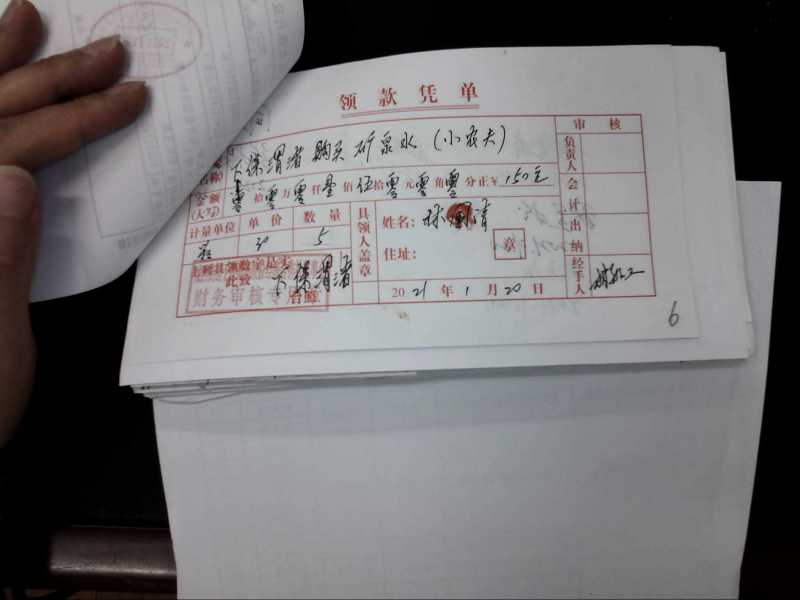 领款凭单
审核
名称 下保渭渚购买矿泉水（小农夫）
负责人
金额（大写） 零拾零万零仟壹佰伍拾零元零角零分正￥150元
会计
计量单位 单价 数量 具领人盖章 姓名：
出纳
30 5 住址： 章
上列其领数字是实
此致 下保渭渚 台照
财务审核专用
经手人
2021年1月20日
6